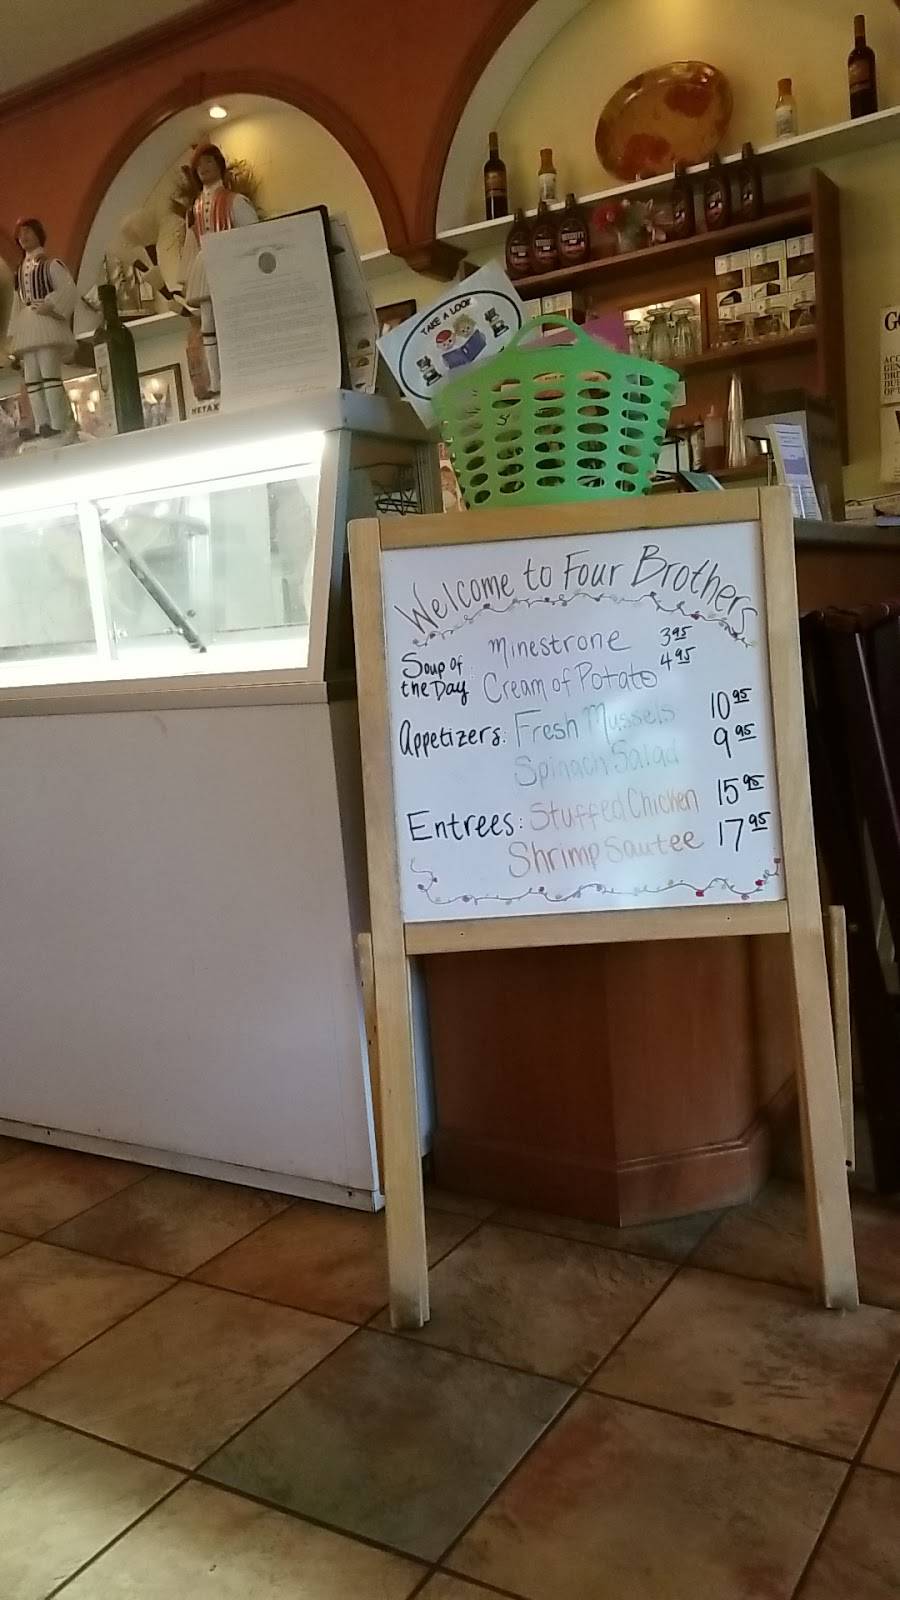 TAKE A LOOK
METAX
Welcome to Four Brothers
Soup of the Day: Minestrone 3.95
Cream of Potato 4.95
Appetizers: Fresh Mussels 10.95
Spinach Salad 9.95
Entrees: Stuffed Chicken 15.95
Shrimp Sautee 17.95